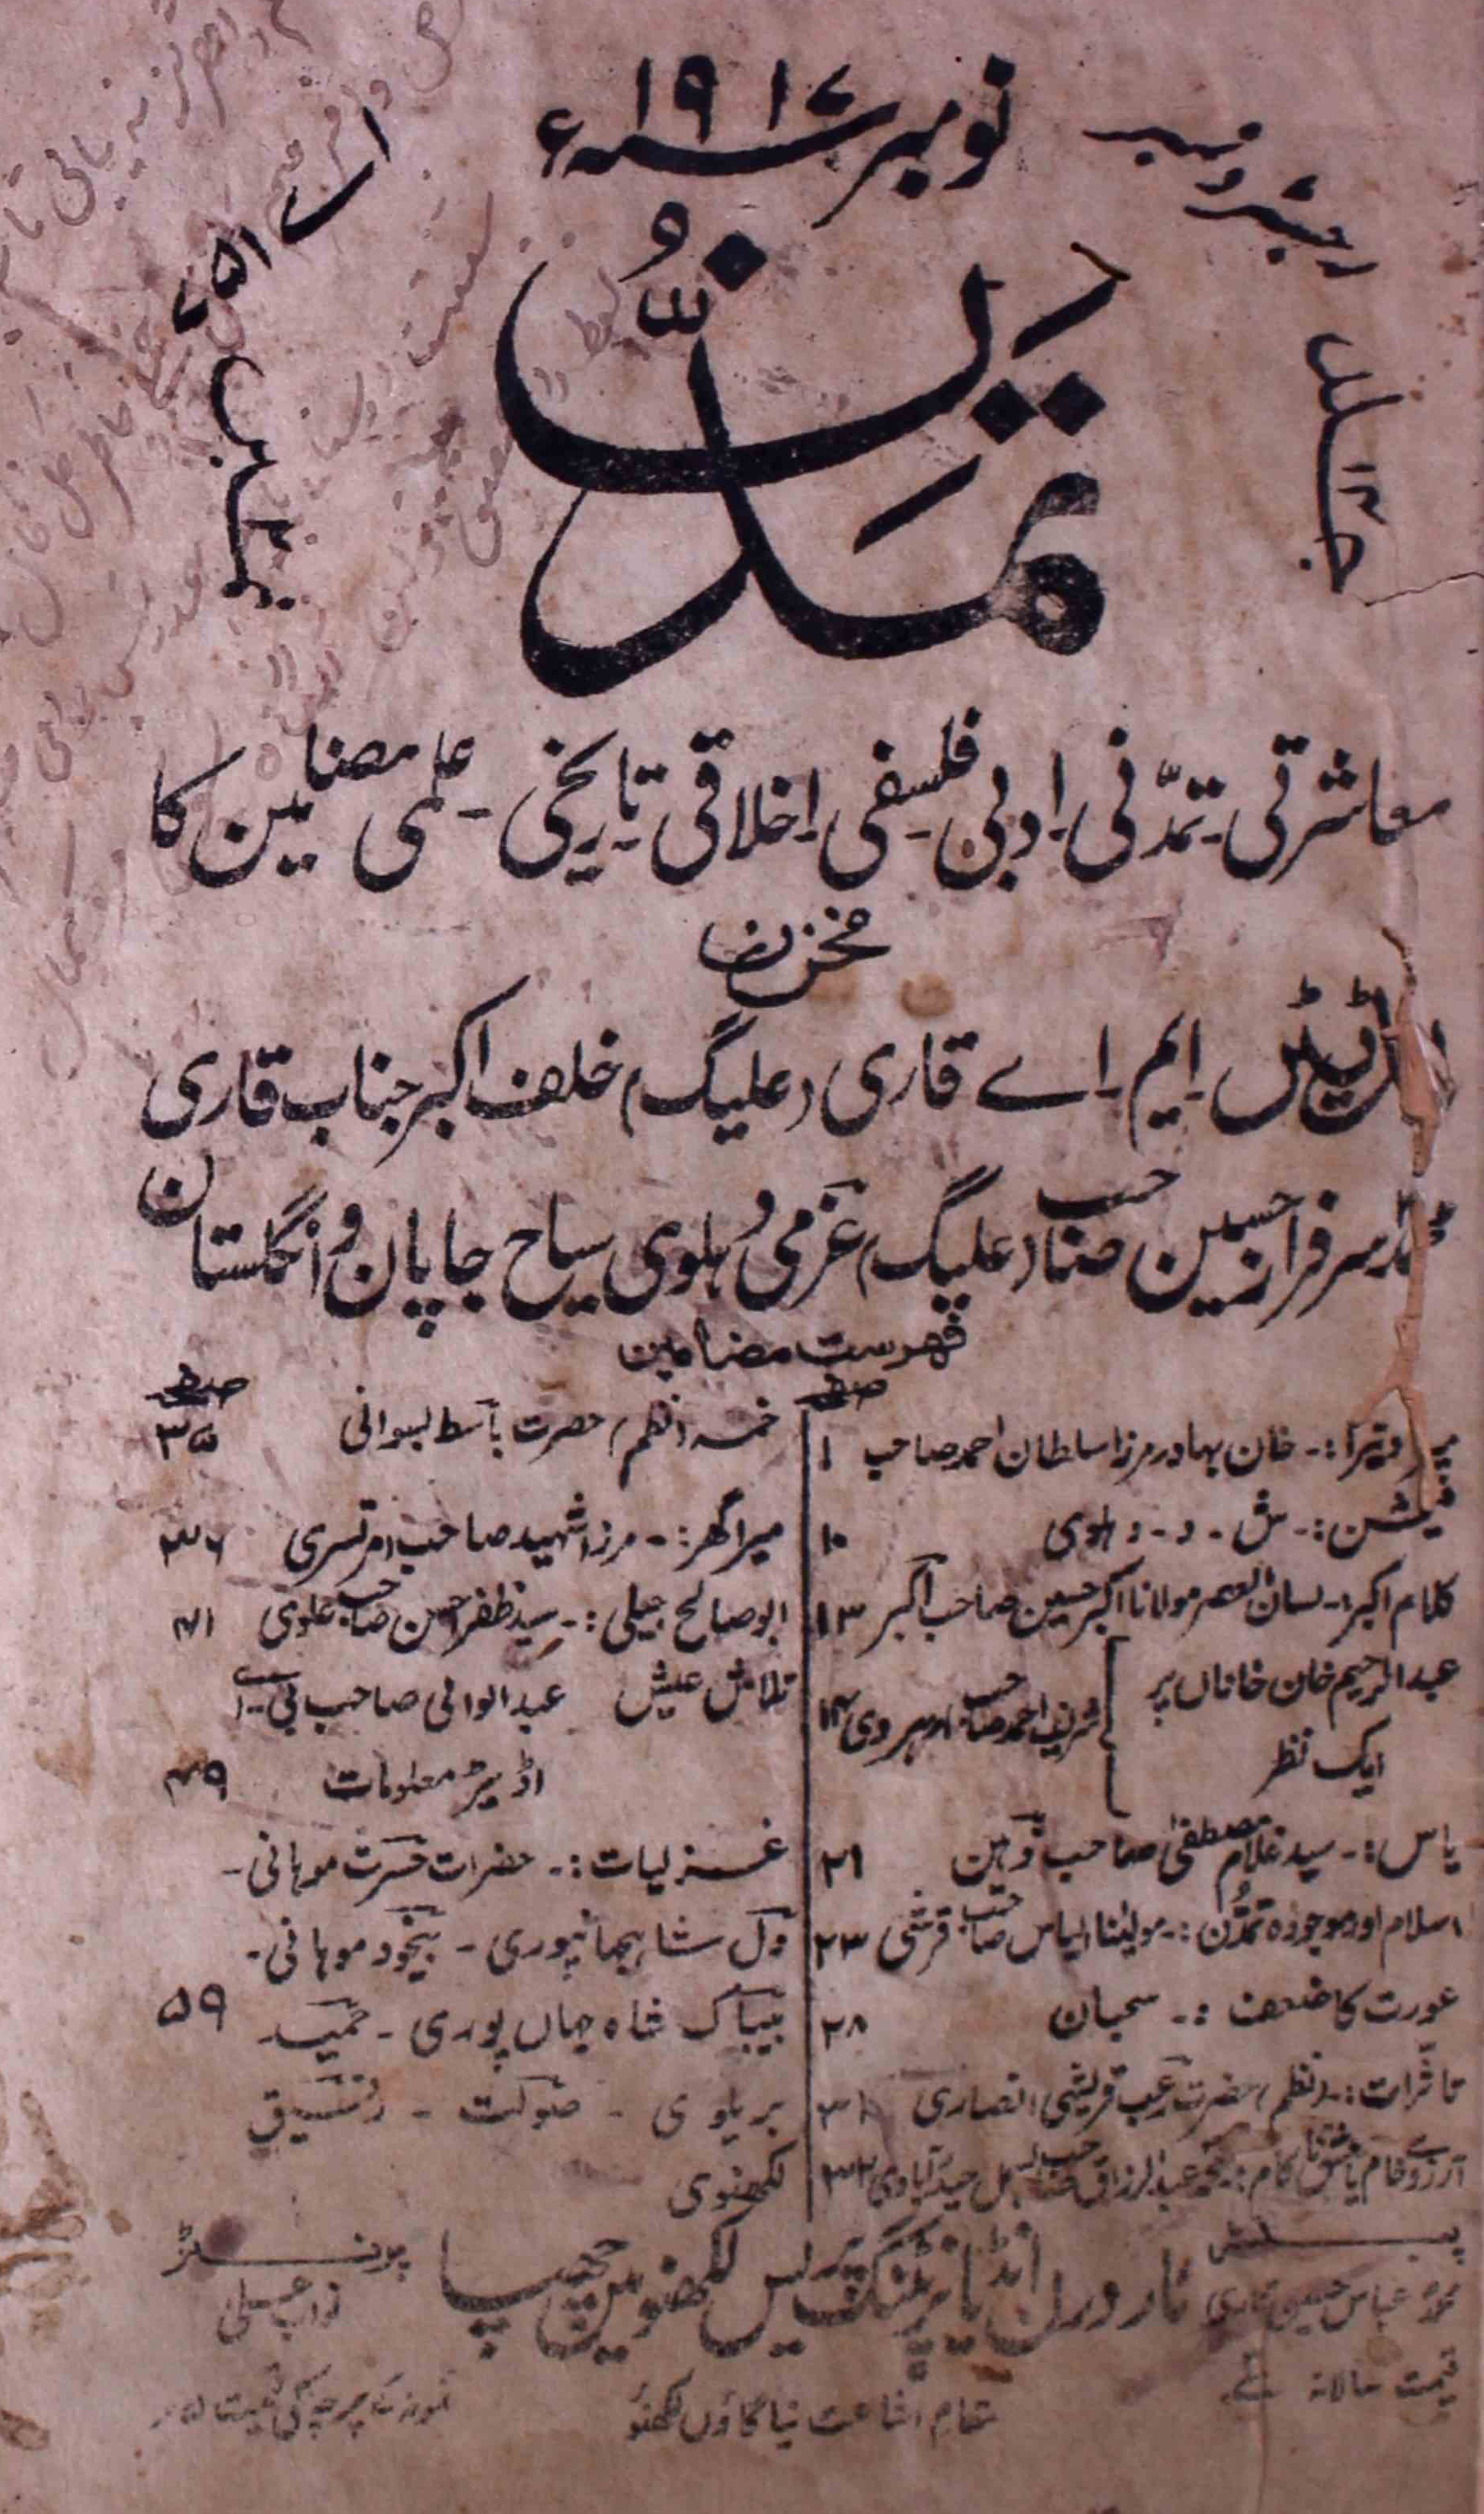 نومبر ۱۹۱۷ء
اے ۷۵۱
جلد ۱۳
تمدّن
معاشرتی۔ تمدّنی۔ ادبی۔ فلسفی۔ اخلاقی۔ تاریخی۔ علمی مضامین کا
مخزن
اڈیٹر۔ ایم۔ اے قاری (علیگ) خلف اکبر جناب قاری
سرفراز حسین صاحب (علیگ) عزمی دہلوی سیاح جاپان و انگلستان
فہرست مضامین
صفحہ
خان بہادر مرزا سلطان احمد صاحب ۱
فیشن:۔ ش۔ د۔ دہلوی ۱۰
کلام اکبر:۔ لسان العصر مولانا اکبر حسین صاحب اکبر ۱۳
عبدالرحیم خان خاناں پر
ایک نظر
شریف احمد صاحب مارہروی ۱۴
یاس:۔ سید غلام مصطفیٰ صاحب ذہین ۲۱
اسلام اور موجودہ تمدُّن:۔ مولینا الیاس صاحب قرشی ۲۳
عورت کا ضعف:۔ سحبان ۲۸
تاثرات:۔ (نظم) حضرت قریشی انصاری ۳۱
عبدالرزاق صاحب بسمل حیدرآبادی ۳۲
صفحہ
خمسہ (نظم) حضرت باسط بسوانی ۳۵
میرا گھر:۔ مرزا شہید صاحب امرتسری ۳۶
ابو صالح جیلی:۔ سید ظفر احسن صاحب علوی ۴۱
تلاش عیش عبدالوالی صاحب بی۔ اے
اڈیٹر معلومات ۴۹
غزلیات:۔ حضرات حسرت موہانی۔
دل شاہجہانپوری۔ بیخود موہانی۔
بیباک شاہ جہاں پوری۔ حمید ۵۹
بریلوی۔ شوکت۔ رفیق
لکھنوی
پبلشر
محمد عباس حسین قاری
ناردرن انڈیا پرنٹنگ پریس لکھنؤ میں چھپا
پرنٹر
نواب علی
قیمت سالانہ
مقام اشاعت نیا گاؤں لکھنؤ
نمونہ کے پرچہ کی قیمت